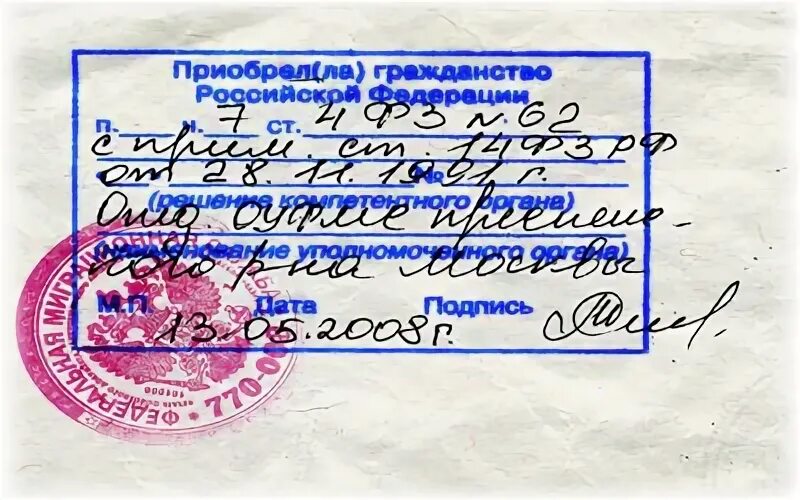 Приобрел(ла) гражданство
Российской Федерации
п. ч. 7 ст. 4 ФЗ N 62
с прим. ст. 14 ФЗ РФ
от 28.11.1991 г. №
(решение компетентного органа)
Отд. ОУФМС
(наименование уполномоченного органа)
р-на Москвы
М.П. Дата Подпись
13.05.2008 г.
ФЕДЕРАЛЬНАЯ МИГРАЦИОННАЯ
770-0